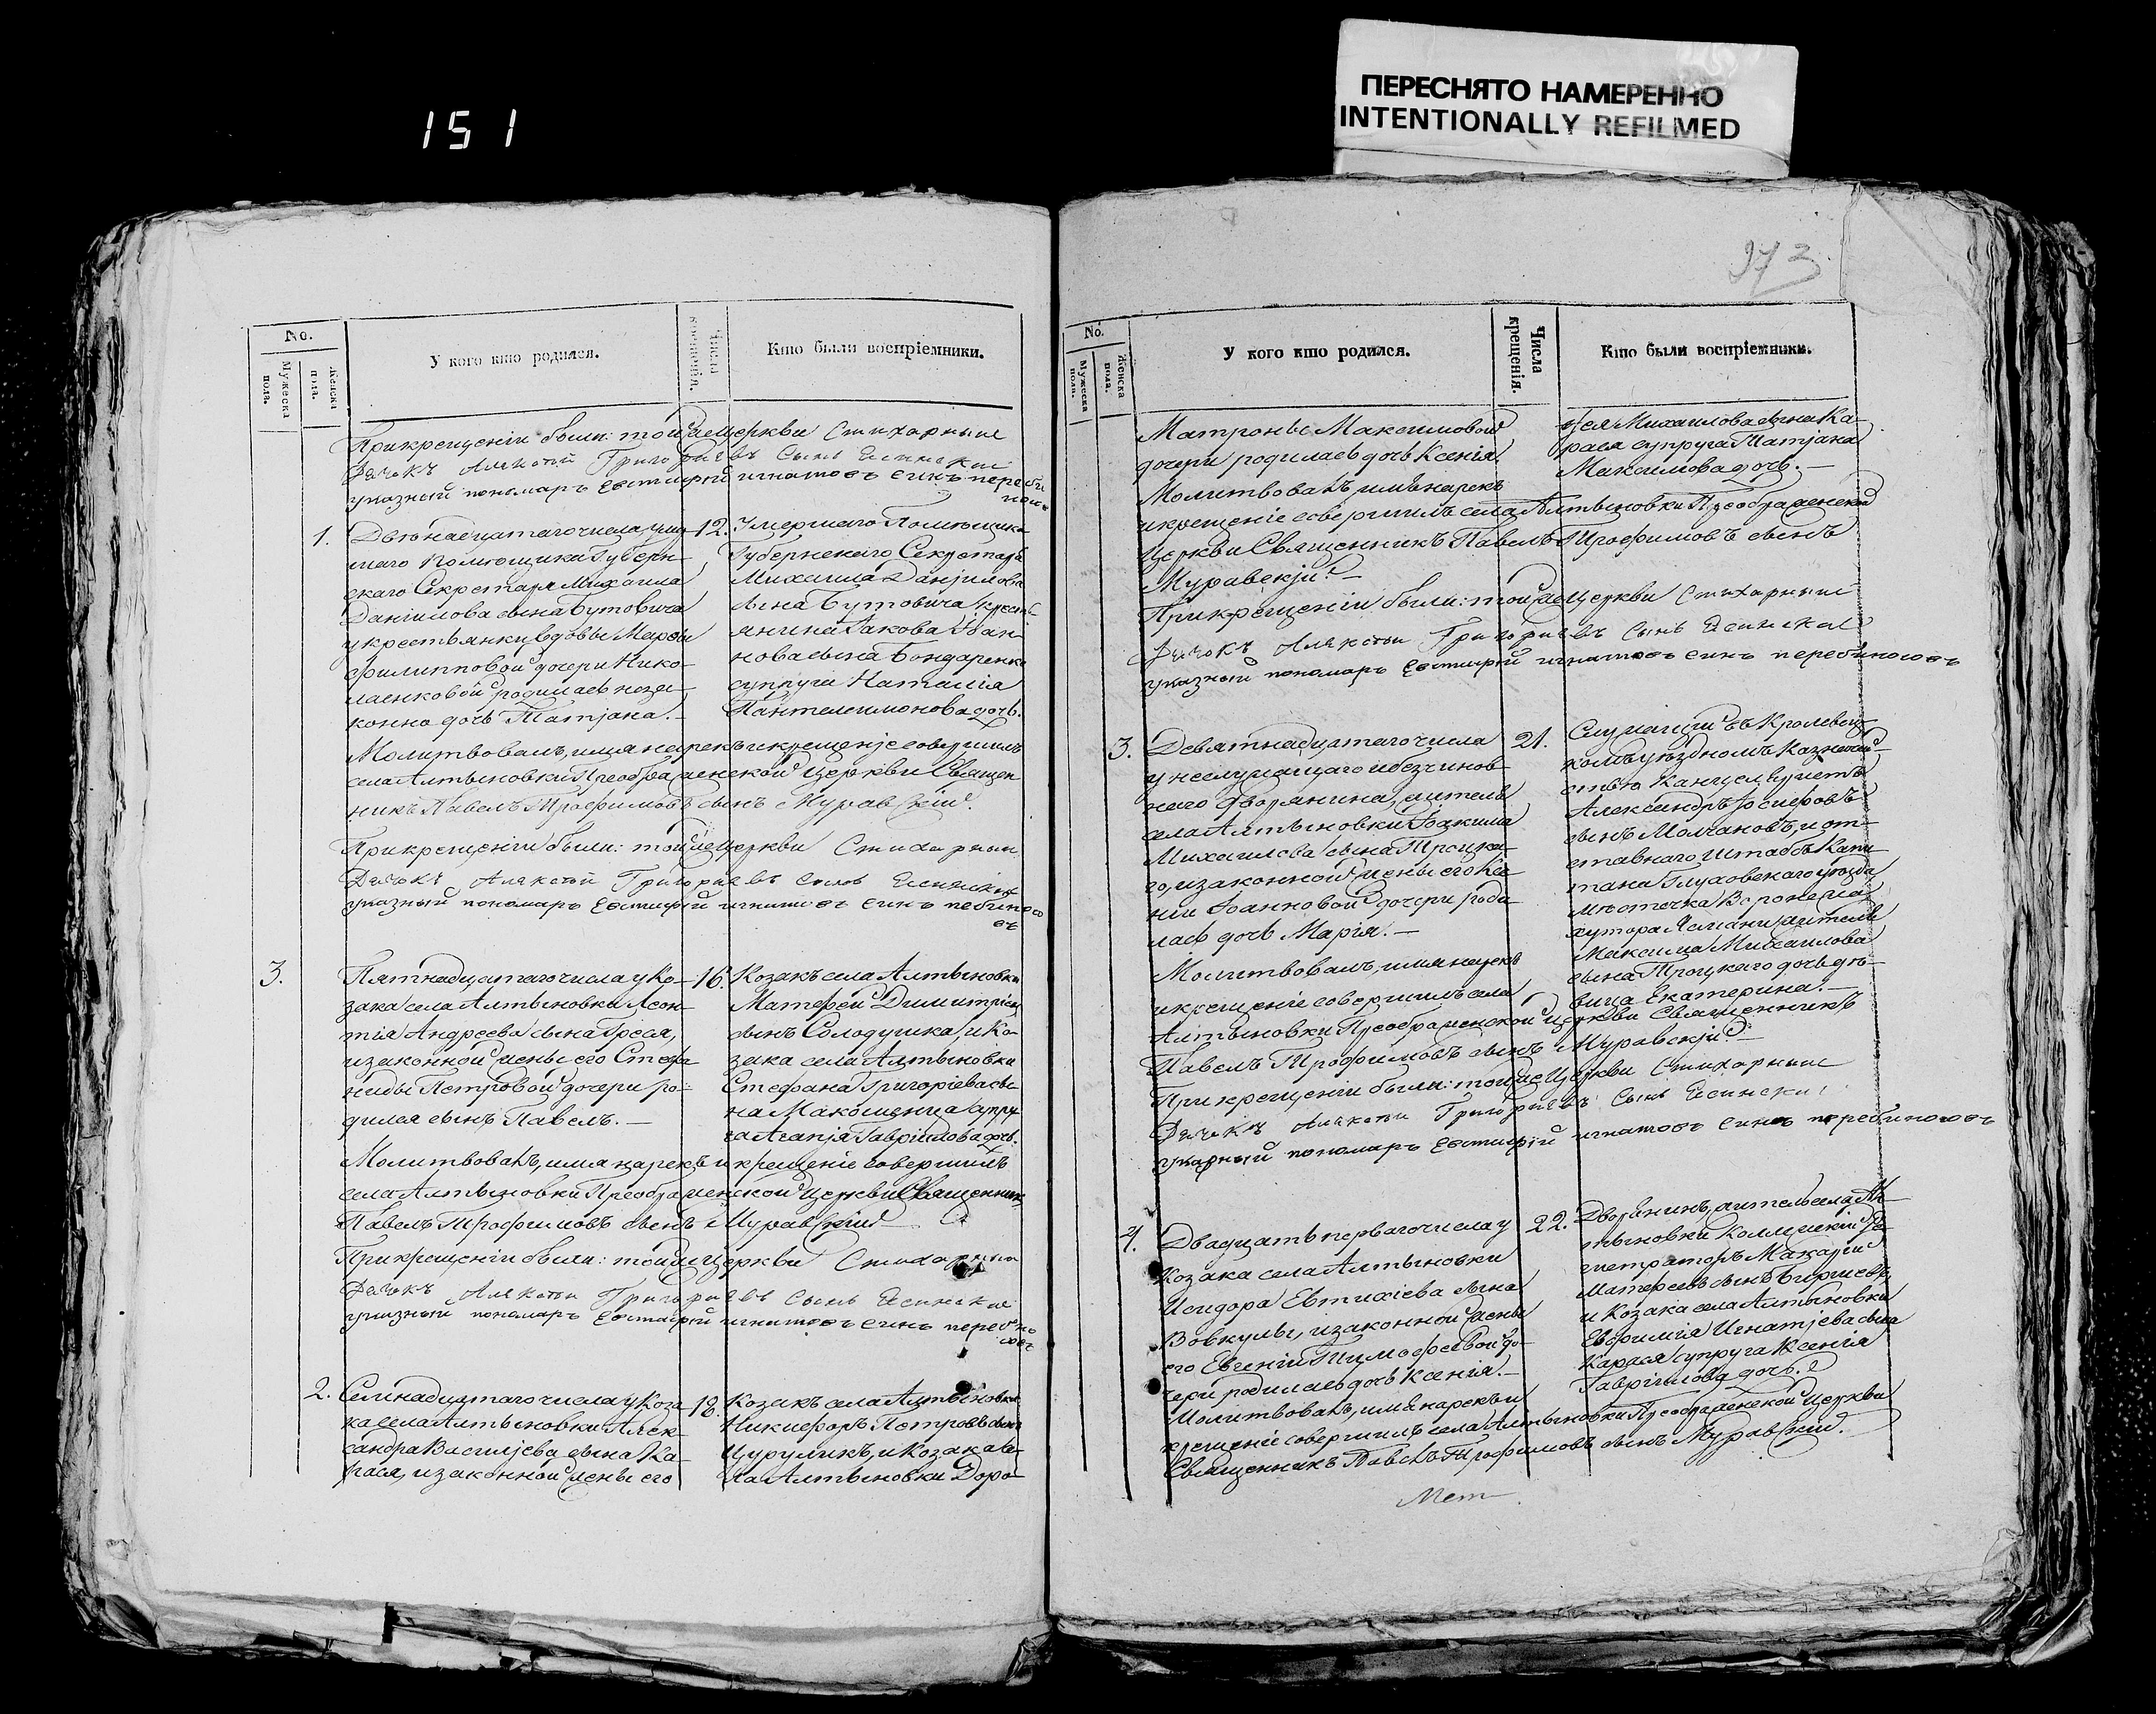 ПЕРЕСНЯТО НАМЕРЕННО
INTENTIONALLY REFILMED
151
No.
Мужеска пола.
Женска пола.
У кого кто родился.
Числа крещенія.
Кто были воспріемники.
При крещеніи были: тойже церкви Стихарный
Дячокъ Алексѣй Григорьевъ сынъ
указный пономарь Евтифій Игнатовъ синъ
1.
Девѣнадцатаго числа, умер-
шаго помѣщика Губерн-
скаго Секретаря Михаила
Даніилова сына Бутовича
у крестьянки, вдовы Марфы
Филипповой дочери Нико-
лаенковой родилась неза-
конно дочь Татіана.
12.
Умершаго Помѣщика
Губернскаго Секретаря
Михаила Даніилова
сына Бутовича крестъ-
янина Іакова Іван-
нова сына Бондаренка
супруга Наталія
Пантелеимонова дочь.
Молитвовалъ, имя нарекъ и крещеніе совершилъ
села Алтыновки Преображенской Церкви Священ
никъ Павелъ Трофимовъ сынъ Муравскій.
При крещеніи были: тойже церкви Стихарный
Дячокъ Алексѣй Григорьевъ сынъ
указный пономарь Евтифій Игнатовъ синъ
3.
Пятнадцатаго числа у Ко-
зака села Алтыновки Леон-
тія Андреева сына Греся,
и законной жены его Стефа
ниды Петровой дочери ро-
дился сынъ Павелъ.
16.
Козакъ села Алтыновки
Матфей Димитріевъ
сынъ Солодушка, и Ко-
зака села Алтыновки
Стефана Григоріева сы-
на Макошенца супру
га Агапія Гавріилова дочь.
Молитвовалъ, имя нарекъ и крещеніе совершилъ
села Алтыновки Преображенской Церкви Священникъ
Павелъ Трофимовъ сынъ Муравскій
При крещеніи были: тойже церкви Стихарный
Дячокъ Алексѣй Григорьевъ сынъ
указный пономарь Евтифій Игнатовъ синъ
2.
Семнадцатаго числа у Коза
ка села Алтыновки Алек-
сандра Василіева сына Ка-
рася, и законной жены его
18.
Козакъ села Алтыновки
Никифоръ Петровъ сынъ
Цируликъ, и Козака се-
ла Алтыновки Доро-
973
No.
Мужеска пола.
Женска пола.
У кого кто родился.
Числа крещенія.
Кто были воспріемники.
Матроны Максимовой
дочери родилась дочь Ксенія.
фея Михаилова сына Ка-
рася супруга Татіана
Максимова дочь.
Молитвовалъ, имя нарекъ
и крещеніе совершилъ села Алтыновки Преображенской
Церкви Священникъ Павелъ Трофимовъ сынъ
Муравскій.
При крещеніи были: тойже Церкви Стихарный
Дячокъ Алексѣй Григорьевъ сынъ
указный пономарь Евтифій Игнатовъ синъ перебиносовъ
3.
Девятнадцатаго числа
у неслужащаго и безчинов
наго дворянина, жителя
села Алтыновки Іоакима
Михаилова сына Троцка-
го, и законной жены его Ксе
ніи Іоанновой дочери роди
лась дочь Марія.
21.
Служащій въ Кролевец-
комъ уѣздномъ Казначей-
ствѣ Канцеляристъ
Александръ Іосифовъ
сынъ Молчановъ, и от-
ставнаго Штабсъ Капи
тана Глуховскаго уѣзда,
мѣстечка Воронежа
хутора Ясмани жителя
Максима Михаилова
сына Троцкаго дочь дѣ-
вица Екатерина.
Молитвовалъ, имя нарекъ
и крещеніе совершилъ села
Алтыновки Преображенской церкви Священникъ
Павелъ Трофимовъ сынъ Муравскій.
При крещеніи были: тойже Церкви Стихарный
Дячокъ Алексѣй Григорьевъ сынъ
указный пономарь Евтифій Игнатовъ синъ перебиносовъ
4.
Двадцать перваго числа у
Козака села Алтыновки
Исидора Евтихіева сына
Вовкулы, и законной жены
его Евгеніи Тимофеевой до-
чери родилась дочь Ксенія.
22.
Дворянинъ, житель села Ал-
тыновки Коллежскій Ре-
гистраторъ Макарій
Матфеевъ сынъ
и Козака села Алтыновки
Евфимія Игнатіева сына
Карася супруга Ксенія
Гавріилова дочь.
Молитвовалъ, имя нарекъ и
крещеніе совершилъ села Алтыновки Преображенской Церкви
Священникъ Павелъ Трофимовъ сынъ Муравскій.